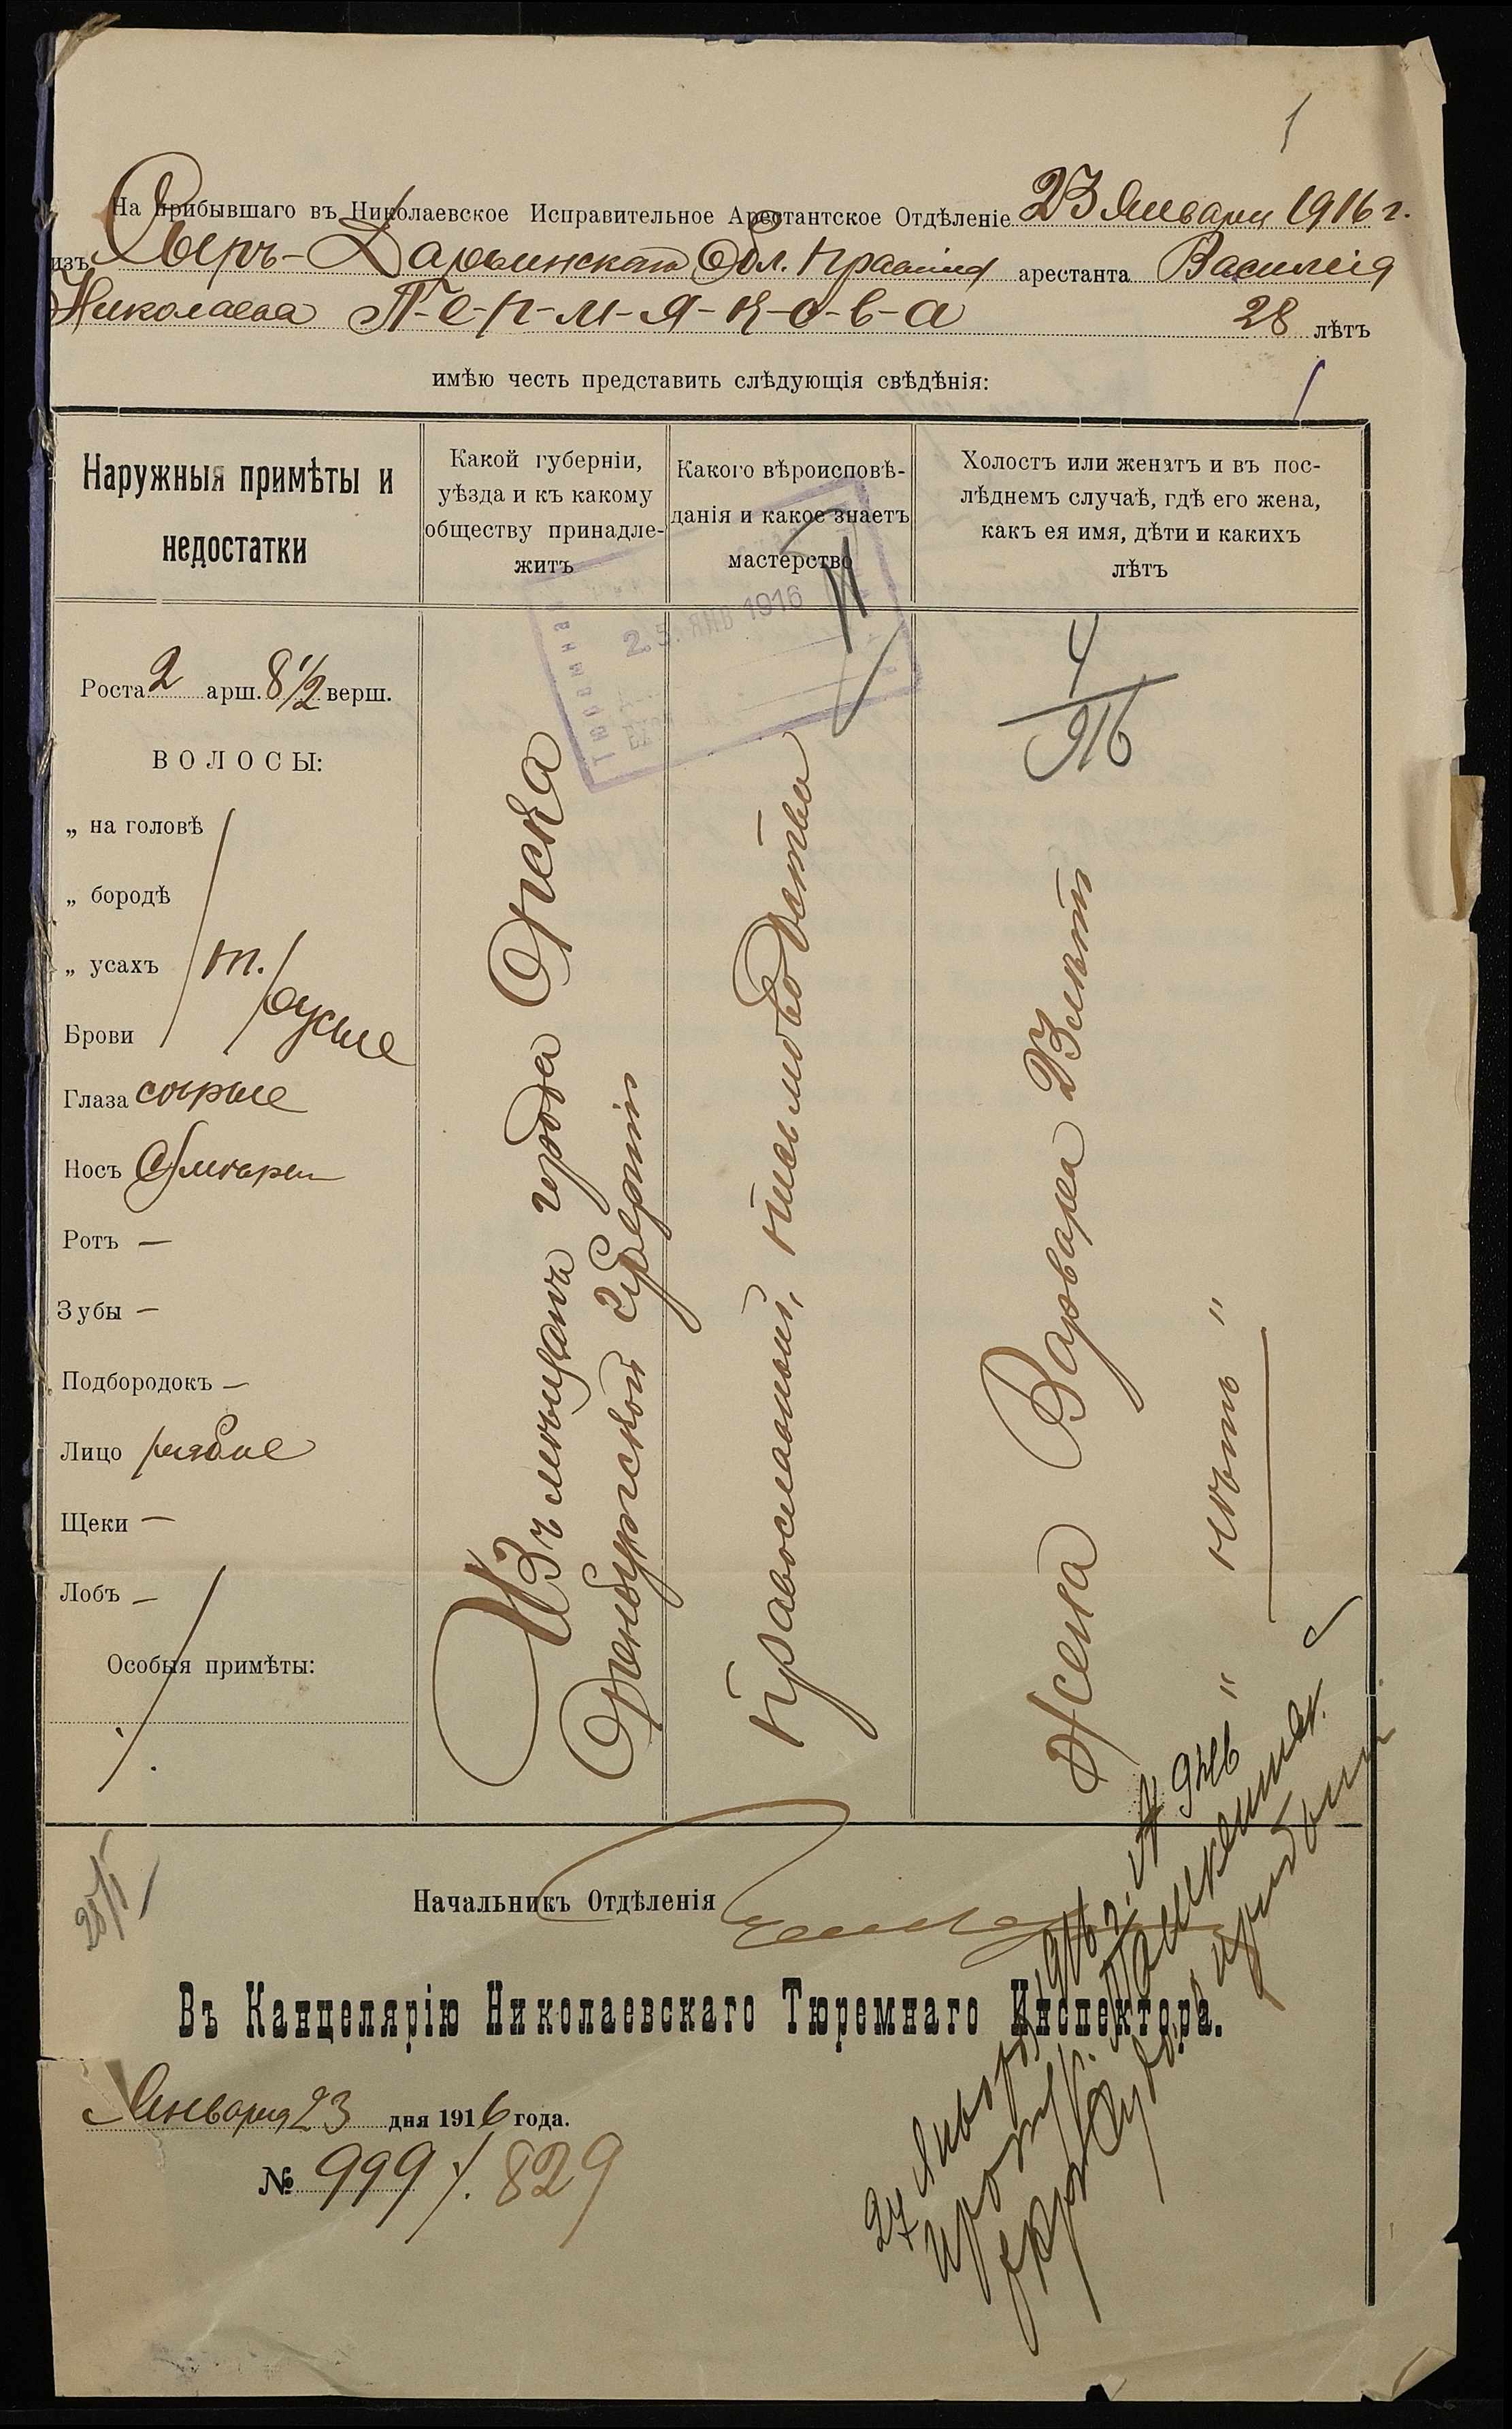 1
На прибывшаго въ Николаевское Исправительное Арестантское Отдѣленіе 23 Января 1916 г.
изъ Сыръ-Дарьинскаго Обл. Правленія арестанта Василія
Николаева П-е-р-м-я-к-о-в-а 28 лѣтъ
имѣю честь представить слѣдующія свѣдѣнія:
Наружныя примѣты и
недостатки
Какой губерніи,
уѣзда и къ какому
обществу принадле-
житъ
Какого вѣроисповѣ-
данія и какое знаетъ
мастерство
Холостъ или женатъ и въ пос-
лѣднемъ случаѣ, гдѣ его жена,
какъ ея имя, дѣти и какихъ
лѣтъ
25 ЯНВ 1916
Роста 2 арш. 8 1/2 верш.
ВОЛОСЫ:
„ на головѣ
„ бородѣ
„ усахъ
т. русые
Брови
Глаза сѣрые
Носъ
Ротъ —
Зубы —
Подбородокъ —
Лицо рябое
Щеки —
Лобъ —
Особыя примѣты:
Изъ мѣщанъ города Орска
Оренбургской губерніи
Православный, письмоводство
4
916
Жена Варвара 23 лѣтъ
" нѣтъ "
Начальникъ Отдѣленія
Въ Канцелярію Николаевскаго Тюремнаго Инспектора.
Января 23 дня 1916 года.
№ 999 /. 829
27 Января 1916 г.